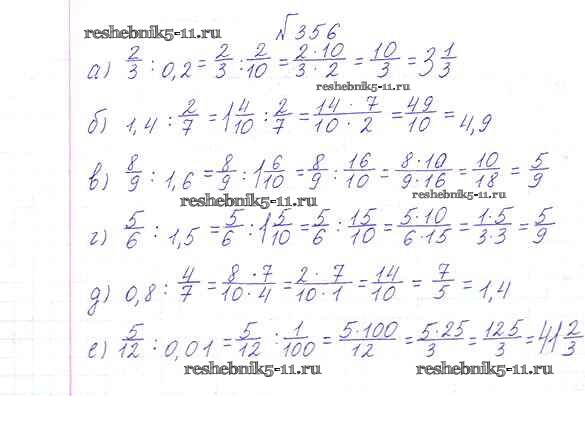 №356
reshebnik5-11.ru
а) 2/3 : 0,2 = 2/3 : 2/10 = 2·10/3·2 = 10/3 = 3 1/3
reshebnik5-11.ru
б) 1,4 : 2/7 = 1 4/10 : 2/7 = 14·7/10·2 = 49/10 = 4,9
в) 8/9 : 1,6 = 8/9 : 1 6/10 = 8/9 : 16/10 = 8·10/9·16 = 10/18 = 5/9
reshebnik5-11.ru
reshebnik5-11.ru
г) 5/6 : 1,5 = 5/6 : 1 5/10 = 5/6 : 15/10 = 5·10/6·15 = 1·5/3·3 = 5/9
д) 0,8 : 4/7 = 8·7/10·4 = 2·7/10·1 = 14/10 = 7/5 = 1,4
е) 5/12 : 0,01 = 5/12 : 1/100 = 5·100/12 = 5·25/3 = 125/3 = 41 2/3
reshebnik5-11.ru
reshebnik5-11.ru